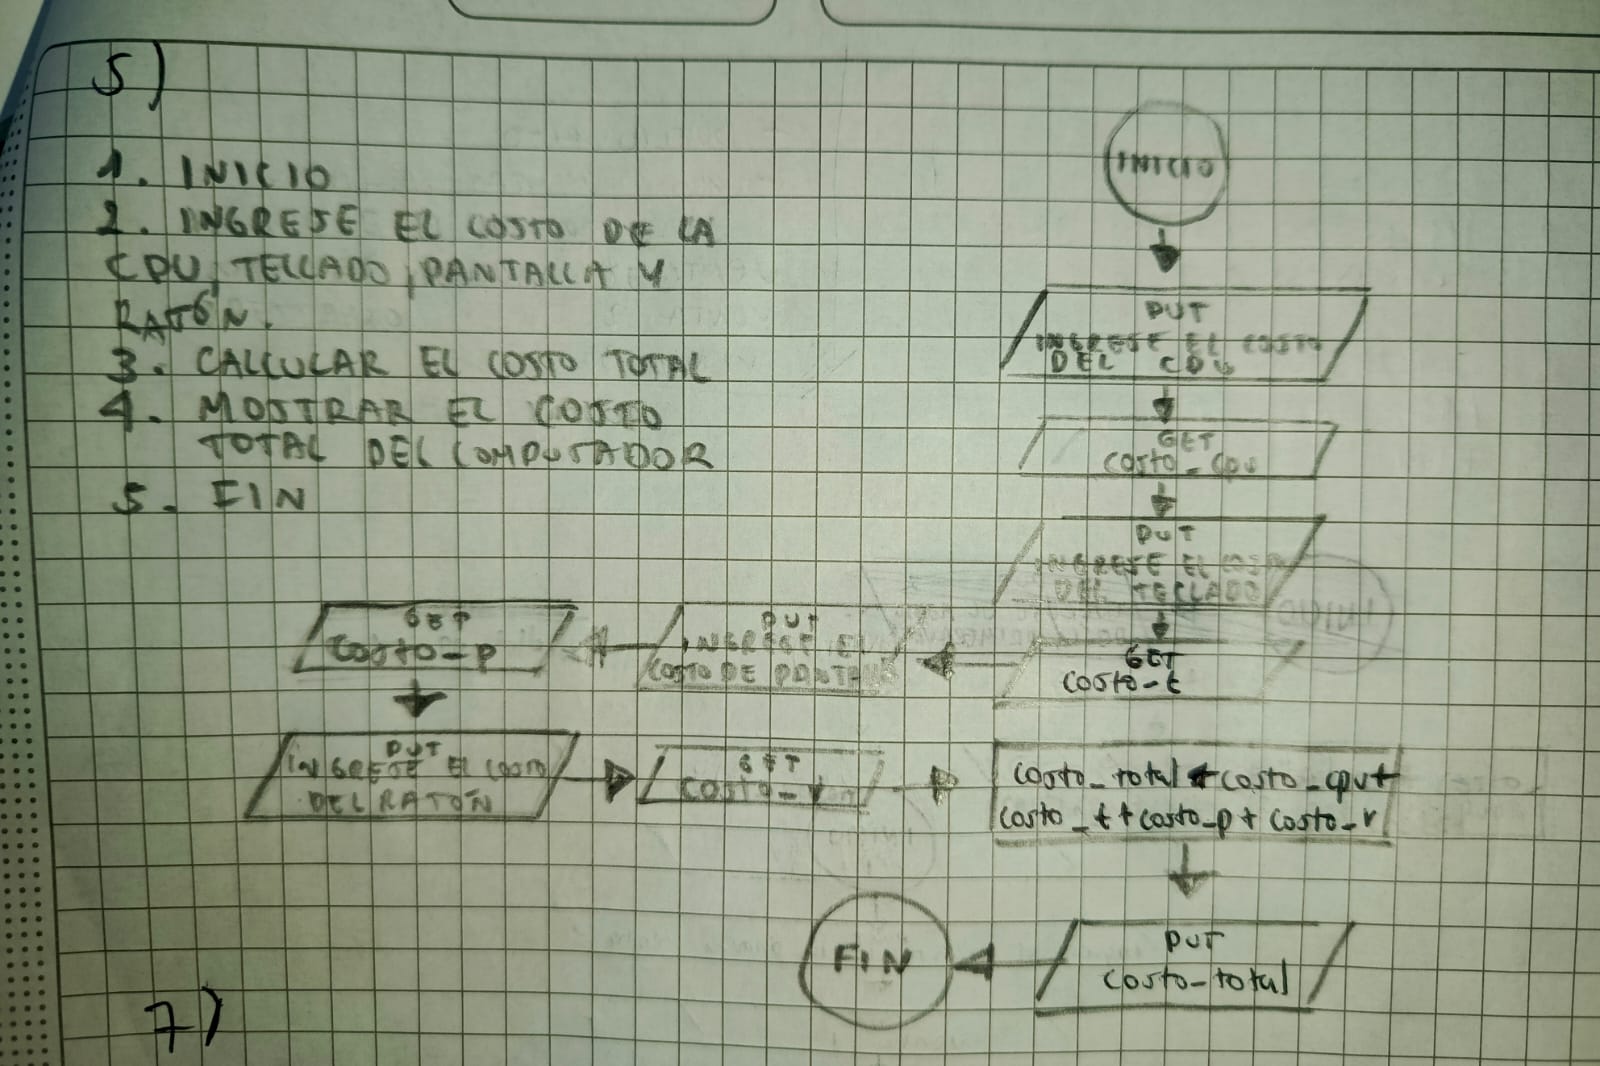 5)
1. INICIO
2. INGRESE EL COSTO DE LA
CPU, TECLADO, PANTALLA Y
RATÓN.
3. CALCULAR EL COSTO TOTAL
4. MOSTRAR EL COSTO
TOTAL DEL COMPUTADOR
5. FIN
INICIO
PUT
INGRESE EL COSTO
DEL CPU
GET
costo_cpu
PUT
INGRESE EL
DEL TECLADO
GET
costo-t
PUT
INGRESE EL
COSTO DE
GET
costo-p
PUT
INGRESE EL COSTO
DEL RATÓN
GET
costo_r
costo_total ← costo_cpu+
costo_t+costo_p+costo_r
PUT
costo-total
FIN
7)